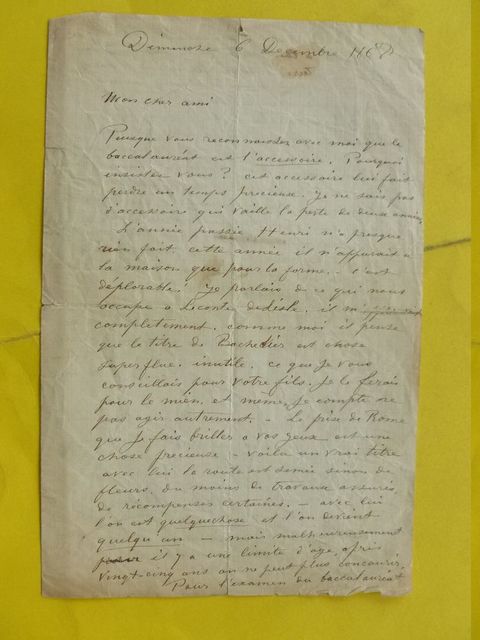 Dimanche 6 Décembre 1868
Mon cher ami
Puisque vous reconnaissez avec moi que le
baccalauréat est l'accessoire. Pourquoi
insistez vous? cet accessoire lui fait
perdre un temps précieux. Je ne sais pas
d'accessoire qui vaille la perte de deux années
L'année passée Henri n'a presque
rien fait cette année il n'apparait à
la maison que pour la forme. - c'est
déplorable! Je parlais de ce qui nous
occupe à Leconte delisle, il m'
complètement. comme moi il pense
que le titre de Bachelier est chose
superflue. inutile. ce que Je vous
conseillais pour votre fils. Je le ferais
pour le mien, et même Je compte ne
pas agir autrement. - Le prix de Rome
que Je fais briller à vos yeux est une
chose précieuse - voilà un vrai titre
avec lui la route est semée sinon de
fleurs, du moins de travaux assurés
de récompenses certaines. - avec lui
l'on est quelquechose et l'on devient
quelqu'un - mais malheureusement
il y a une limite d'age, après
vingt-cinq ans on ne peut plus concourir.
Pour l'examen du baccalauréat